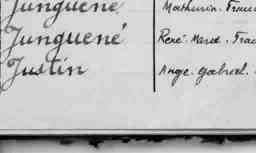 Junguené Mathurin. Franc
Junguené René Marie. Fran
Justin Ange. Gabriel.